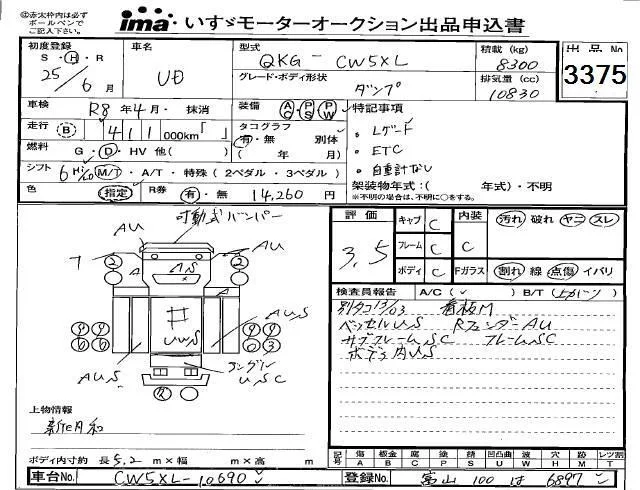 ㊟赤太枠内は必ず
ボールペンで
ご記入下さい。
ima いすゞモーターオークション出品申込書
初度登録 車名 型式 積載 (kg) 出品No
S・H・R QKG- CW5XL 8300 3375
25/6月 UD グレード・ボディ形状 排気量 (cc)
ダンプ 10830
車検 R8年4月・抹消 装備 AC PS PW 特記事項
走行 B 411 000km「 」 タコグラフ Lゲート
有・無 別体 ETC
燃料 G・D・HV 他( ) ( 年 月) 自重計なし
シフト 6 M/T・A/T・特殊 (2ペダル・3ペダル) 架装物年式:( 年式)・不明
※不明の場合は、不明に○をする。
色 指定 R券 有・無 14,260円
可動式バンパー
評価 キャブ C 内装 汚れ 破れ ヤニ スレ
3.5 フレーム C C
ボディ C Fガラス 割れ 線 点傷 イバリ
AU AU
AS
UWS
AUS AUS
USC
検査員報告 A/C( ) B/T( )
別タコ13/03 看板M
ベッセルUS RフェンダーAU
サブフレームSC フレームSC
ボディ内US
上物情報
新明和
ボディ内寸約 長5.2m×幅 m×高 m
記号 傷 板金 腐 塗 錆 凹凸曲 波 穴 跡 レツ割
A B C P S U W H M T
車台No. CW5XL-10690 登録No. 富山 100 は 6897